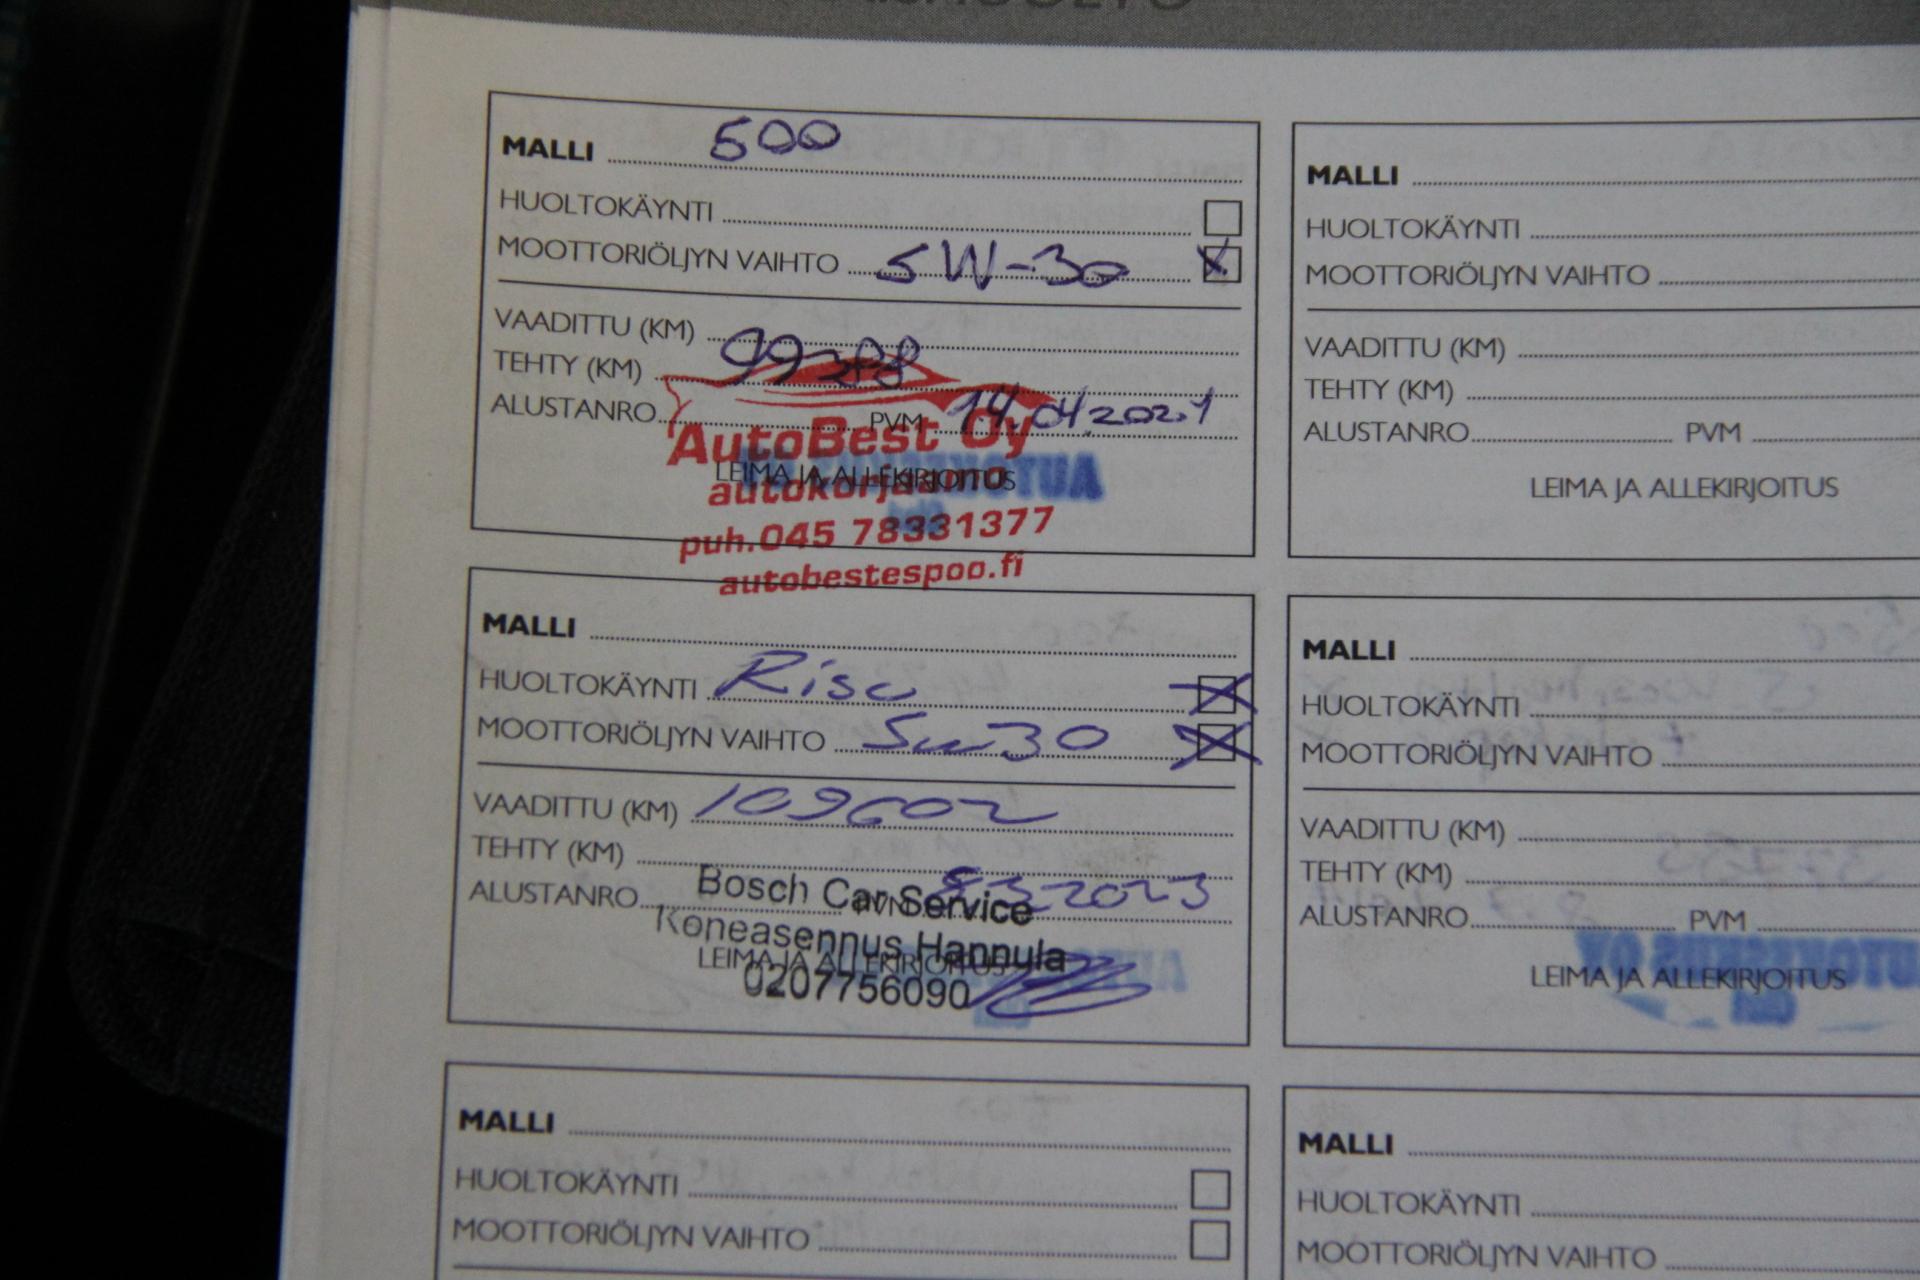 MALLI 500
HUOLTOKÄYNTI
MOOTTORIÖLJYN VAIHTO 5W-30 X
VAADITTU (KM)
TEHTY (KM) 99388
ALUSTANRO PVM 14.04.2021
LEIMA JA ALLEKIRJOITUS
AutoBest Oy
autokorjaamo
puh.045 78331377
autobestespoo.fi
MALLI
HUOLTOKÄYNTI
MOOTTORIÖLJYN VAIHTO
VAADITTU (KM)
TEHTY (KM)
ALUSTANRO PVM
LEIMA JA ALLEKIRJOITUS
MALLI
HUOLTOKÄYNTI X
MOOTTORIÖLJYN VAIHTO 5w30 X
VAADITTU (KM) 109602
TEHTY (KM)
ALUSTANRO PVM 8.3.2023
LEIMA JA ALLEKIRJOITUS
Bosch Car Service
Koneasennus Hannula
0207756090
MALLI
HUOLTOKÄYNTI
MOOTTORIÖLJYN VAIHTO
VAADITTU (KM)
TEHTY (KM)
ALUSTANRO PVM
LEIMA JA ALLEKIRJOITUS
MALLI
HUOLTOKÄYNTI
MOOTTORIÖLJYN VAIHTO
MALLI
HUOLTOKÄYNTI
MOOTTORIÖLJYN VAIHTO